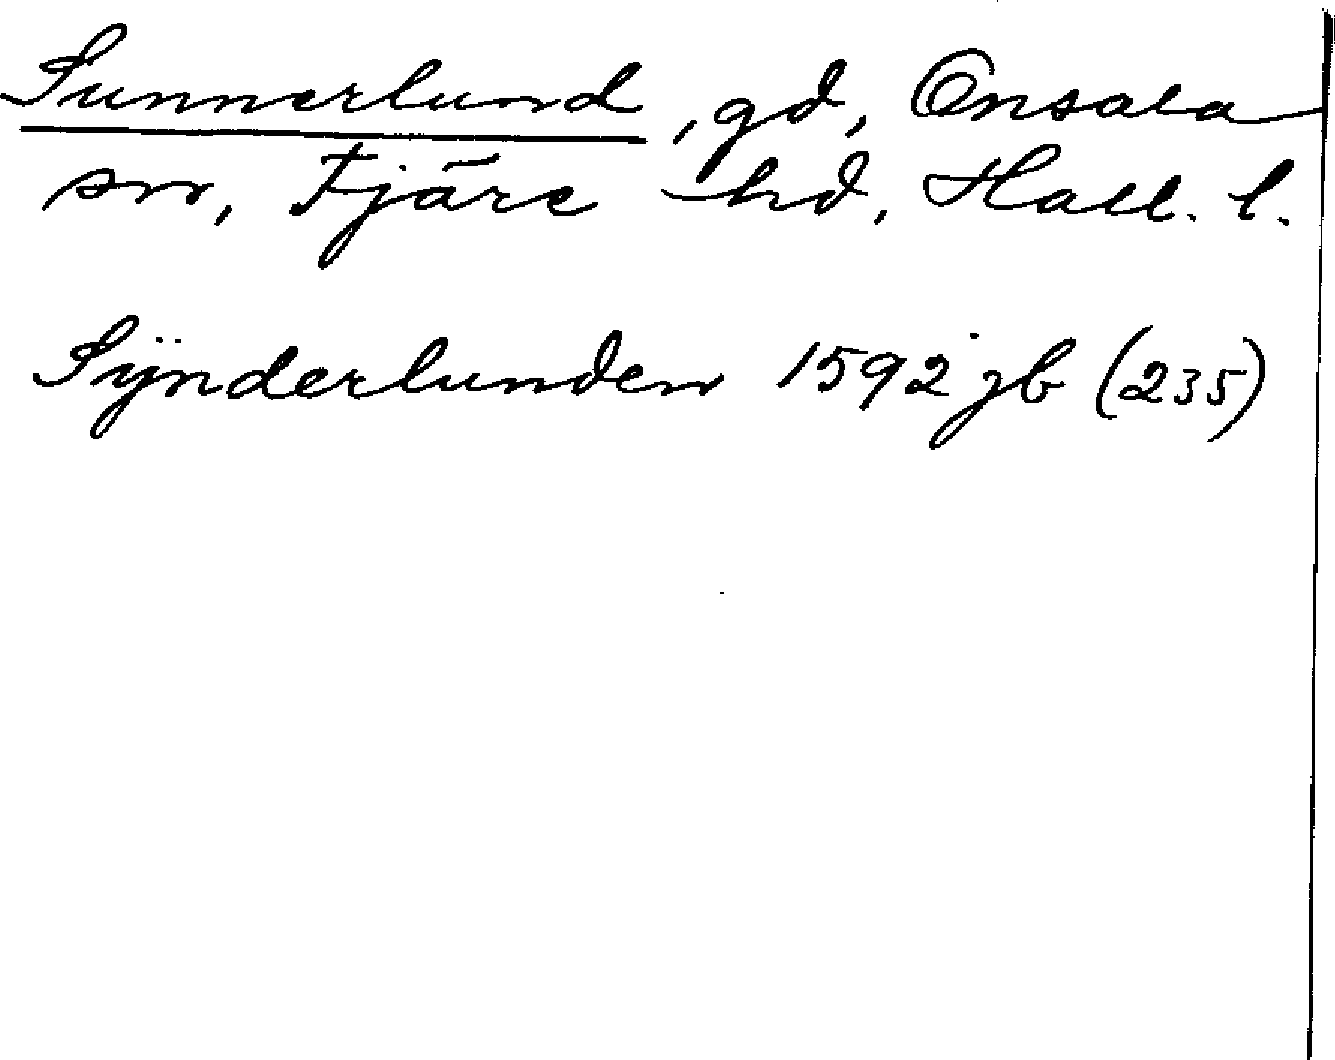 Sunnerlund, gd, Onsala
sn, Fjäre hd, Hall. l.
Sÿnderlunden 1592 jb (235)